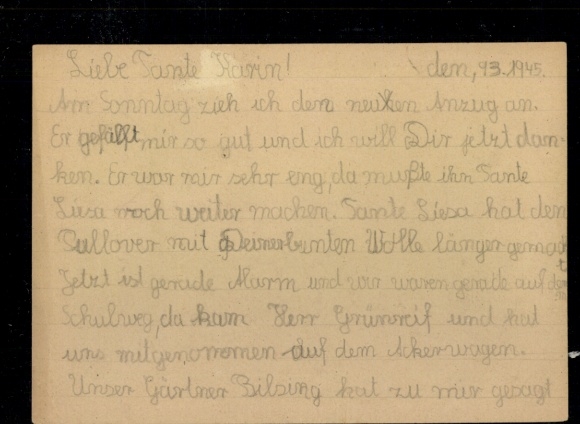 Liebe Tante Karin! den, 13.1945.
Am Sonntag zieh ich den neuen Anzug an.
Er gefällt mir so gut und ich will Dir jetzt dan-
ken. Er war nur sehr eng, da mußte ihn Tante
Liesa noch weiter machen. Tante Liesa hat den
Pullover mit Deiner bunten Wolle länger gemacht
Jetzt ist gerade Alarm und wir waren gerade auf dem
Schulweg, da kam Herr Grünreif und hat
uns mitgenommen auf dem Ackerwagen.
Unser Gärtner Bilsing hat zu mir gesagt